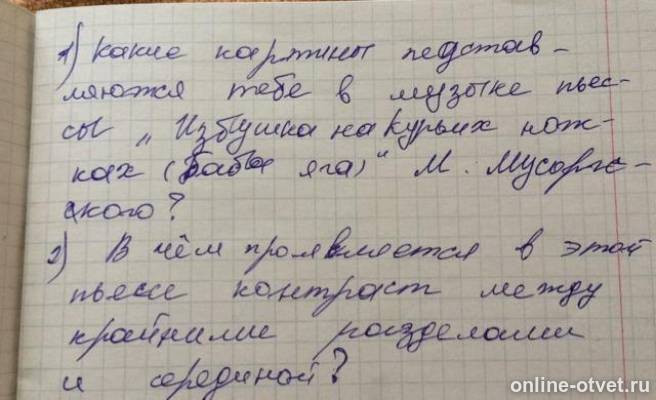 1) Какие картины педстав-
ляются тебе в музыке пьес-
сы „Избушка на курьих нож-
ках (Баба яга)" М. Мусоргс-
ского?
2) В чём проявляется в этой
пьесе контраст между
крайними разделами
и серединой?
online-otvet.ru